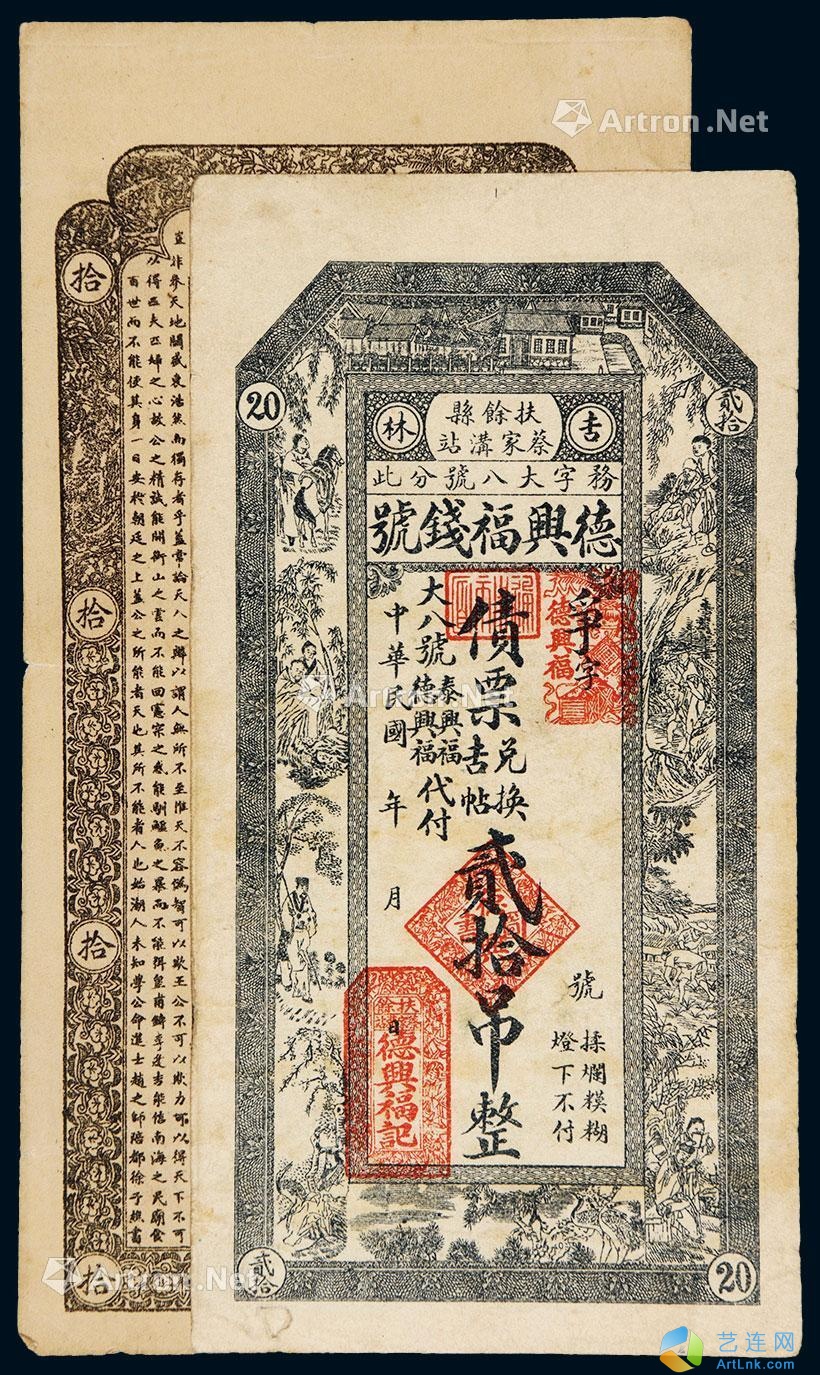 Artron.Net
拾
拾
拾
拾
豈非參天地關盛衰浩然而獨存者乎蓋嘗論天人之辨以謂人無所不至惟天不容偽智可以欺王公不可以欺力可以得天下不可
以得匹夫匹婦之心故公之精誠能開衡山之雲而不能回憲宗之惑能馴鱷魚之暴而不能弭皇甫鎛李逢吉能信南海之民廟食
百世而不能使其身一日安於朝廷之上蓋公之所能者天也其所不能者人也始潮人未知學公命進士趙之師陪都徐子
20
貳拾
吉林
扶餘縣
蔡家溝站
務字大八號分此
德興福錢號
爭字
號
揉爛模糊
燈下不付
債票兌換吉帖貳拾吊整
大八號泰興福德興福代付
中華民國 年 月 日
德興福
扶餘
德興福記
Artron.Net
貳拾
20
Artron.Net
Artron.Net
艺连网
ArtLnk.com